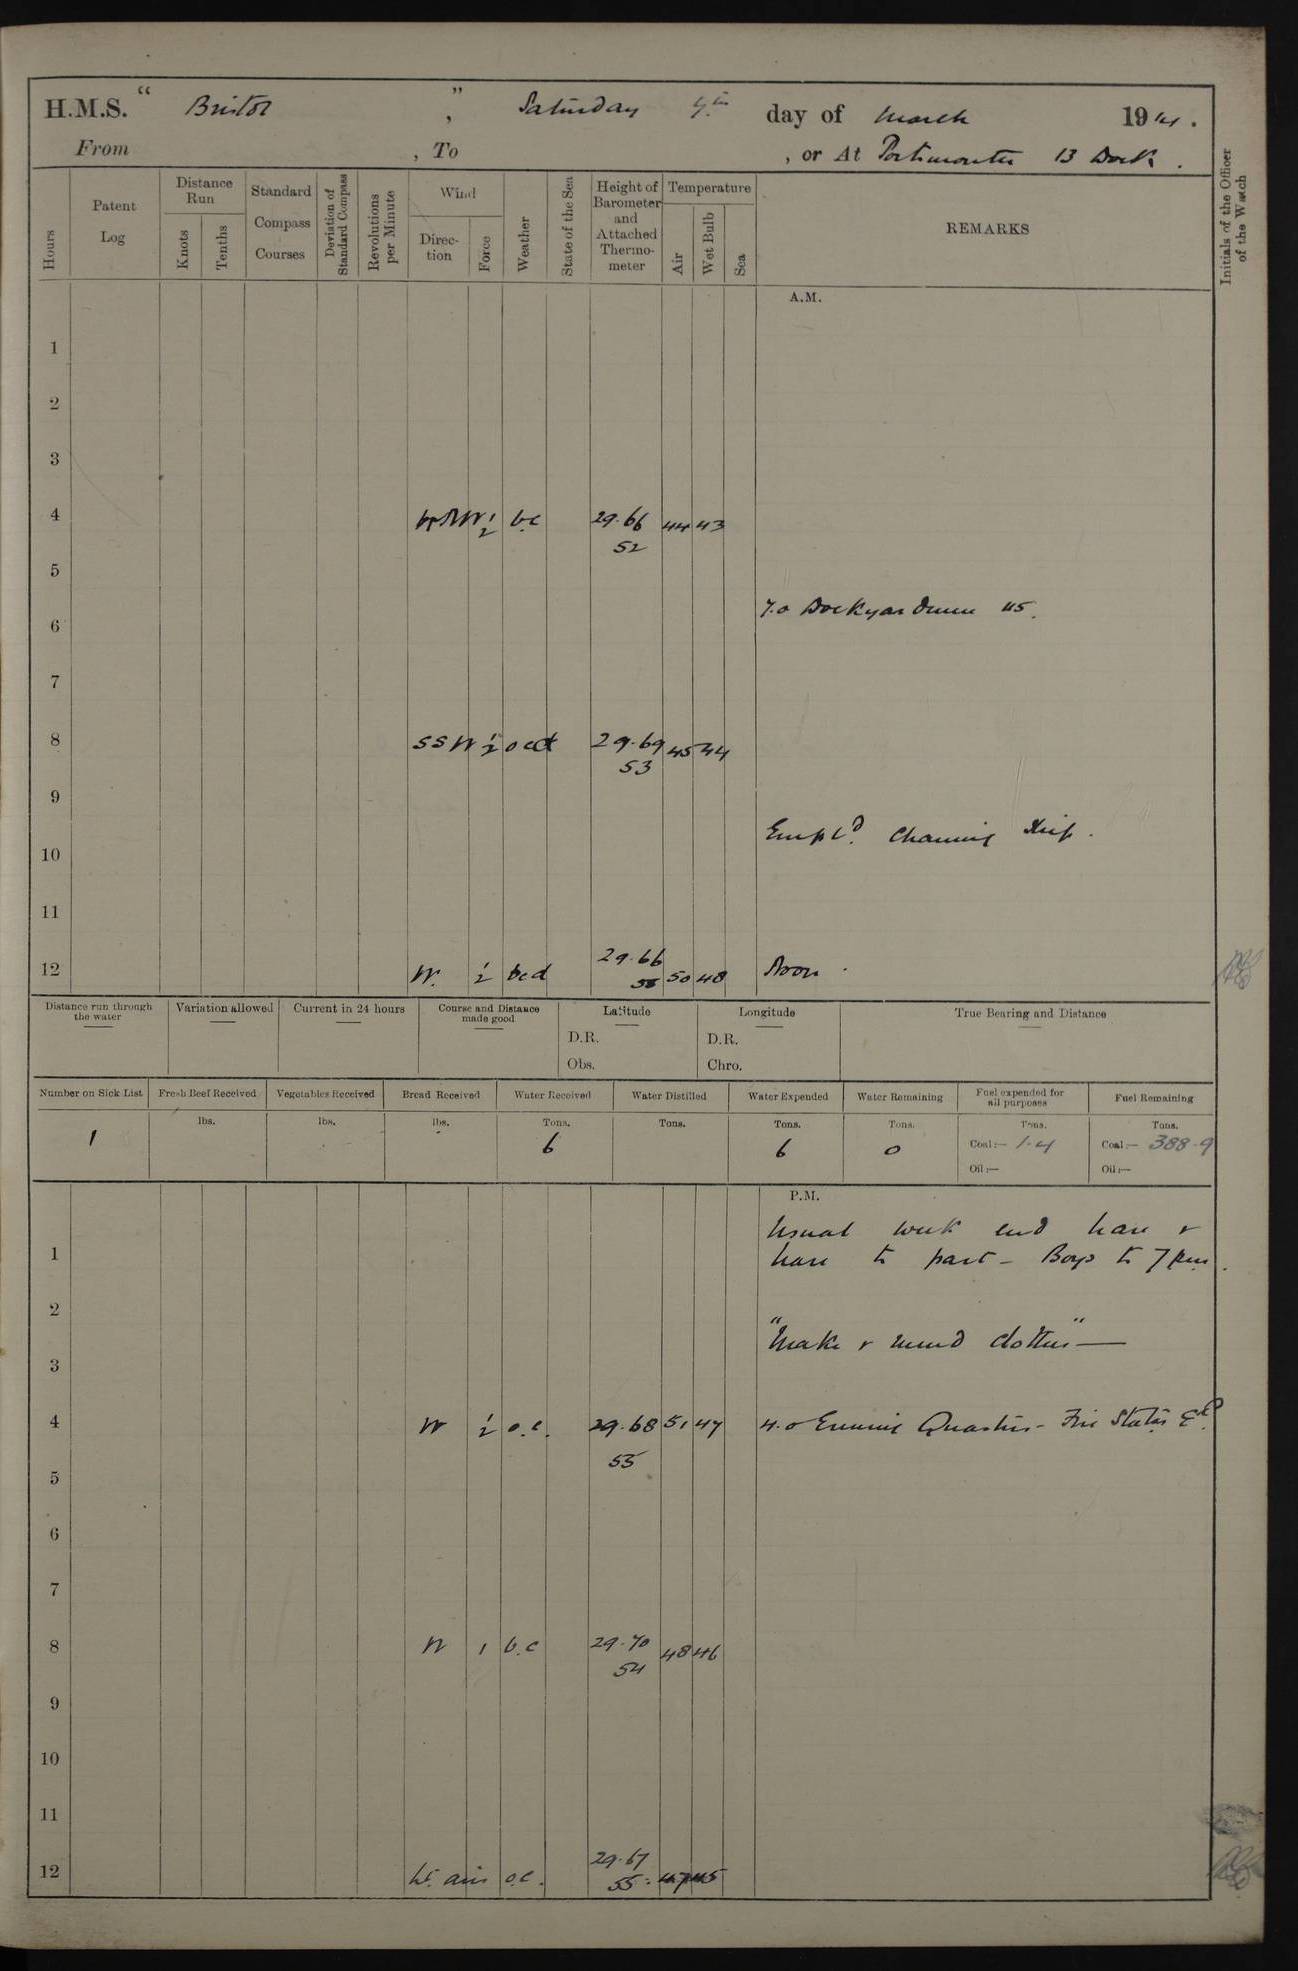 H.M.S. “ Bristol ” , Saturday 7th day of March 1914.
From , To , or At Portsmouth 13 Dock .
Hours
Patent Log
Distance Run
Knots
Tenths
Standard Compass Courses
Deviation of Standard Compass
Revolutions per Minute
Wind
Direction
Force
Weather
State of the Sea
Height of Barometer and Attached Thermometer
Temperature
Air
Wet Bulb
Sea
REMARKS
Initials of the Officer of the Watch
A.M.
1
2
3
4 1/2 b.c 29.66 44 43
52
5
7.0 Dockyardmen 45.
6
7
8 SSW 1/2 o c d 29.69 45 44
53
9
Empld. Cleaning Ship.
10
11
12 W. 1/2 bcd 29.66 50 48 Noon.
55
Distance run through the water
Variation allowed
Current in 24 hours
Course and Distance made good
Latitude
D.R.
Obs.
Longitude
D.R.
Chro.
True Bearing and Distance
Number on Sick List
Fresh Beef Received
Vegetables Received
Bread Received
Water Received
Water Distilled
Water Expended
Water Remaining
Fuel expended for all purposes
Fuel Remaining
lbs. lbs. lbs. Tons. Tons. Tons. Tons. Tons. Tons.
1 6 6 0 Coal:— 1.4 Coal:— 388.9
Oil:— Oil:—
P.M.
Usual week end leave &
1 leave to part – Boys to 7 pm.
2
"Make & mend clothes" —
3
4 W 1/2 o.c. 29.68 51 47 4.0 Evening Quarters – Fire Statns Exd.
55
5
6
7
8 W 1 b.c 29.70 48 46
54
9
10
11
12 Lt. airs o.c. 29.67 47 45
55